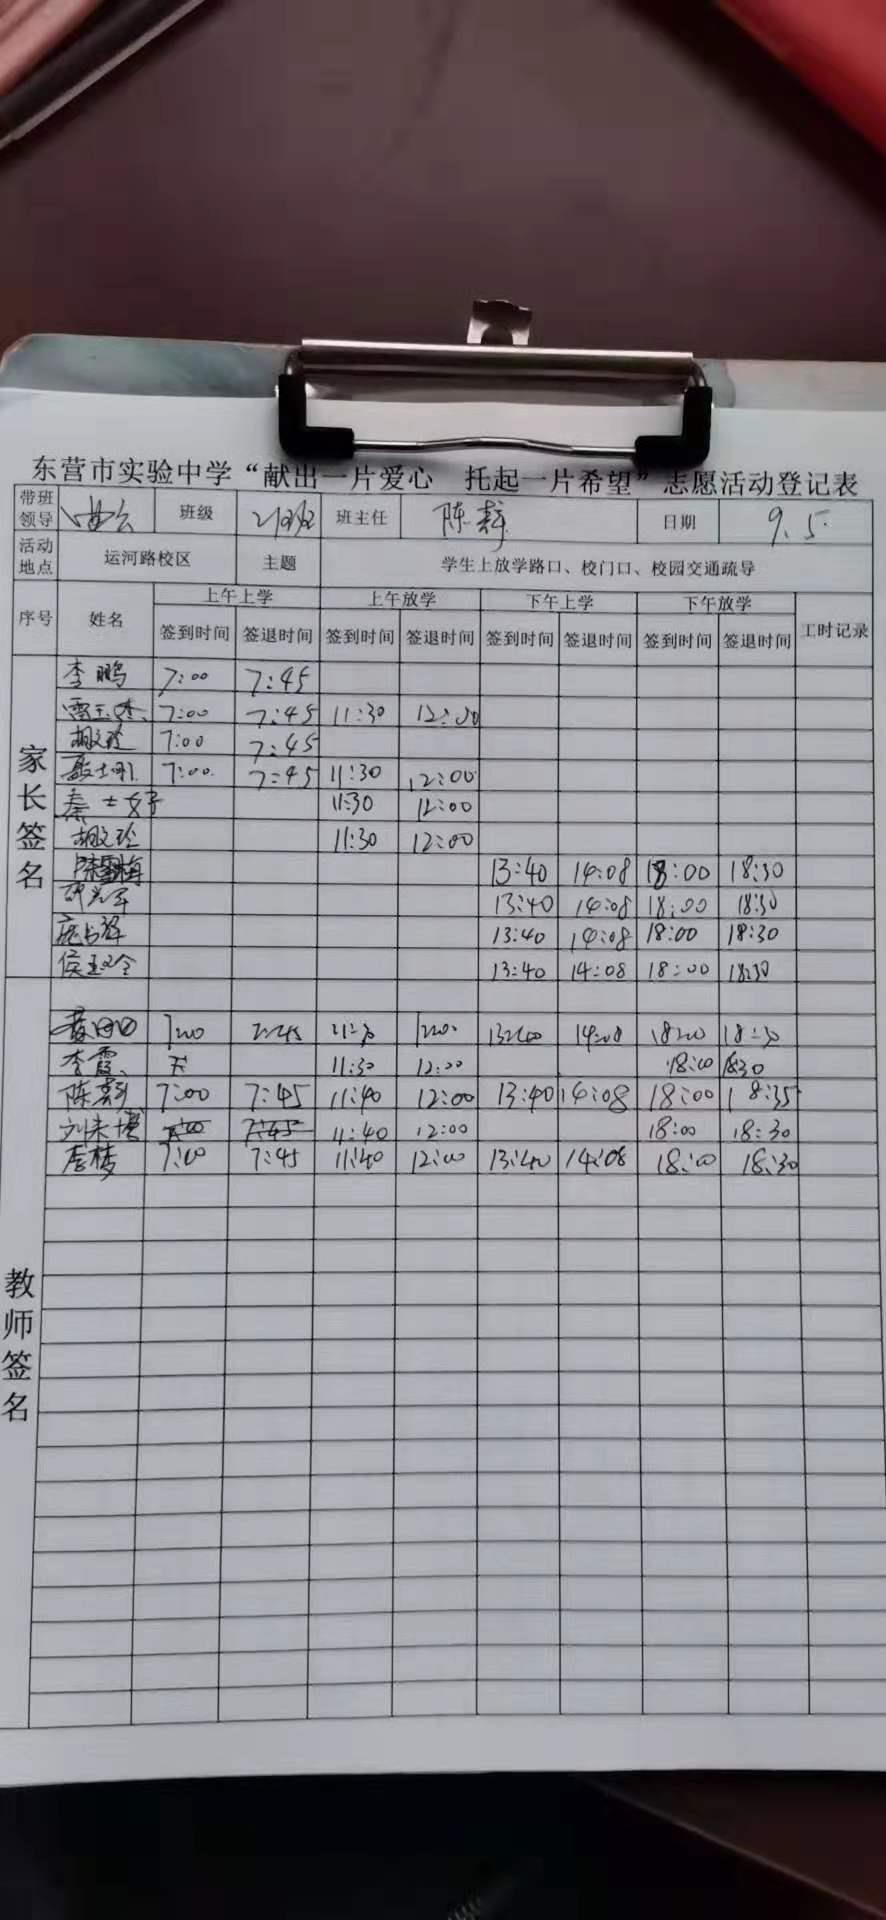 东营市实验中学“献出一片爱心 托起一片希望”志愿活动登记表
带班领导 班级 21班 班主任 陈 日期 9.5
活动地点 运河路校区 主题 学生上放学路口、校门口、校园交通疏导
序号 姓名 上午上学 上午放学 下午上学 下午放学 工时记录
签到时间 签退时间 签到时间 签退时间 签到时间 签退时间 签到时间 签退时间
家长签名
李鹏 7:00 7:45
雷玉杰 7:00 7:45 11:30 12:00
胡文玲 7:00 7:45
7:00 7:45 11:30 12:00
秦士好 11:30 12:00
胡文玲 11:30 12:00
陈雪梅 13:40 14:08 18:00 18:30
13:40 14:08 18:00 18:30
13:40 14:08 18:00 18:30
侯玉令 13:40 14:08 18:00 18:30
教师签名
7:00 7:45 11:30 12:00 13:40 14:08 18:00 18:30
李霞 11:30 12:00 18:00 18:30
陈 7:00 7:45 11:40 12:00 13:40 14:08 18:00 18:35
刘朱博 7:00 7:45 11:40 12:00 18:00 18:30
唐梦 7:00 7:45 11:40 12:00 13:40 14:08 18:00 18:30